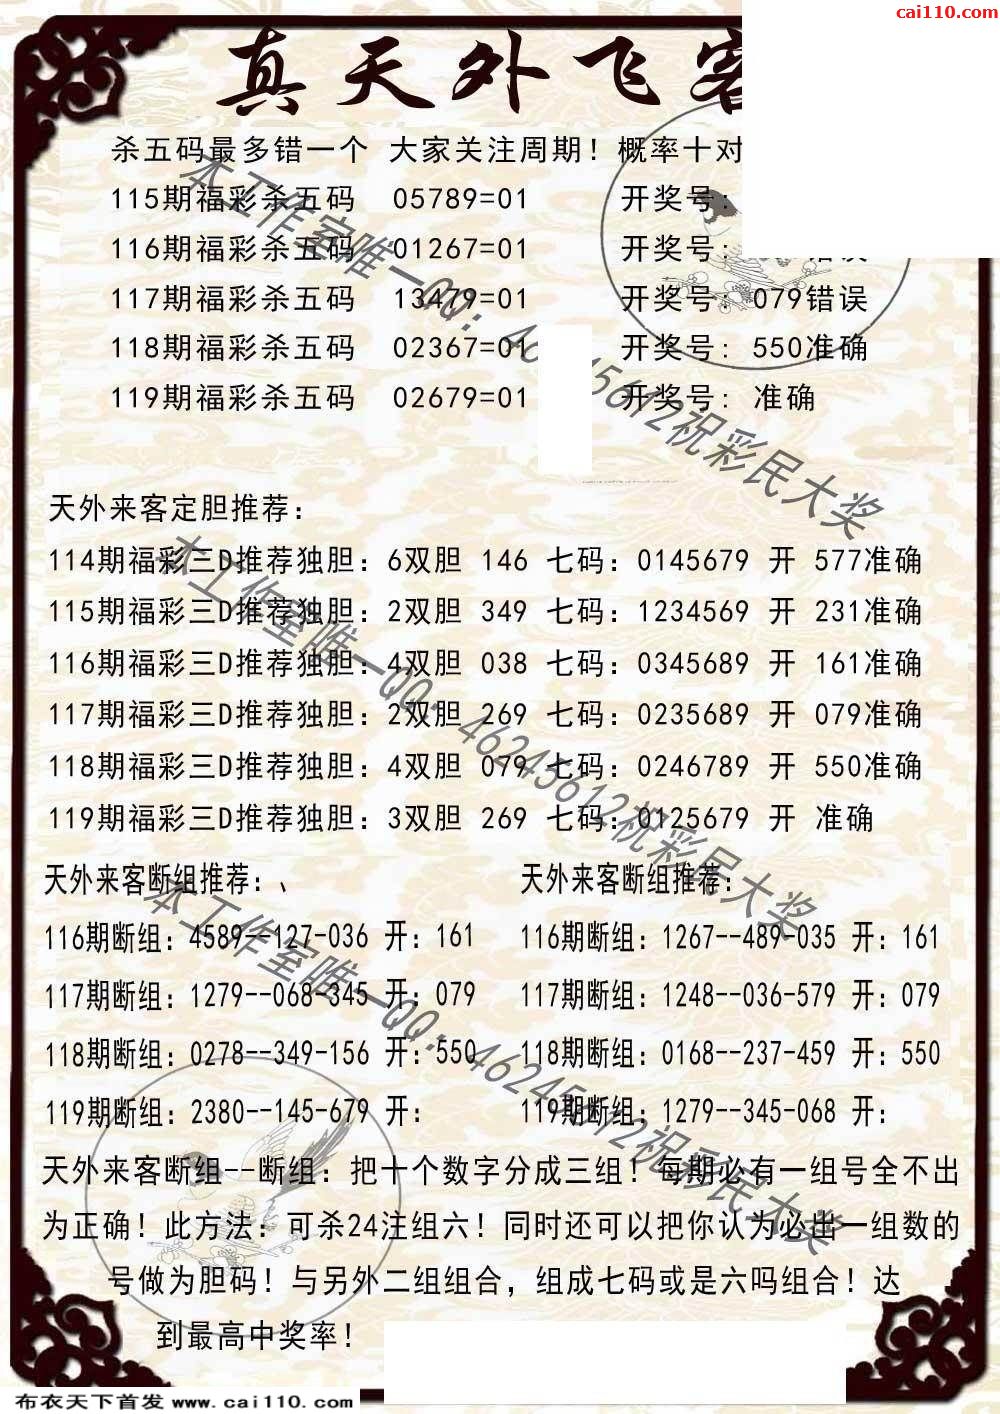 cai110.com
真天外飞客
杀五码最多错一个 大家关注周期！概率十对
115期福彩杀五码 05789=01 开奖号:
116期福彩杀五码 01267=01 开奖号: 错误
117期福彩杀五码 13479=01 开奖号: 079错误
118期福彩杀五码 02367=01 开奖号: 550准确
119期福彩杀五码 02679=01 开奖号: 准确
天外来客定胆推荐:
114期福彩三D推荐独胆: 6双胆 146 七码: 0145679 开 577准确
115期福彩三D推荐独胆: 2双胆 349 七码: 1234569 开 231准确
116期福彩三D推荐独胆: 4双胆 038 七码: 0345689 开 161准确
117期福彩三D推荐独胆: 2双胆 269 七码: 0235689 开 079准确
118期福彩三D推荐独胆: 4双胆 079 七码: 0246789 开 550准确
119期福彩三D推荐独胆: 3双胆 269 七码: 0125679 开 准确
天外来客断组推荐:、 天外来客断组推荐:
116期断组: 4589--127-036 开: 161 116期断组: 1267--489-035 开: 161
117期断组: 1279--068-345 开: 079 117期断组: 1248--036-579 开: 079
118期断组: 0278--349-156 开: 550 118期断组: 0168--237-459 开: 550
119期断组: 2380--145-679 开: 119期断组: 1279--345-068 开:
天外来客断组--断组: 把十个数字分成三组！每期必有一组号全不出
为正确！此方法: 可杀24注组六！同时还可以把你认为必出一组数的
号做为胆码！与另外二组组合，组成七码或是六吗组合！达
到最高中奖率！
本工作室唯一QQ: 46245612祝彩民大奖
本工作室唯一QQ: 46245612祝彩民大奖
本工作室唯一QQ: 46245612祝彩民大奖
布衣天下首发 www.cai110.com